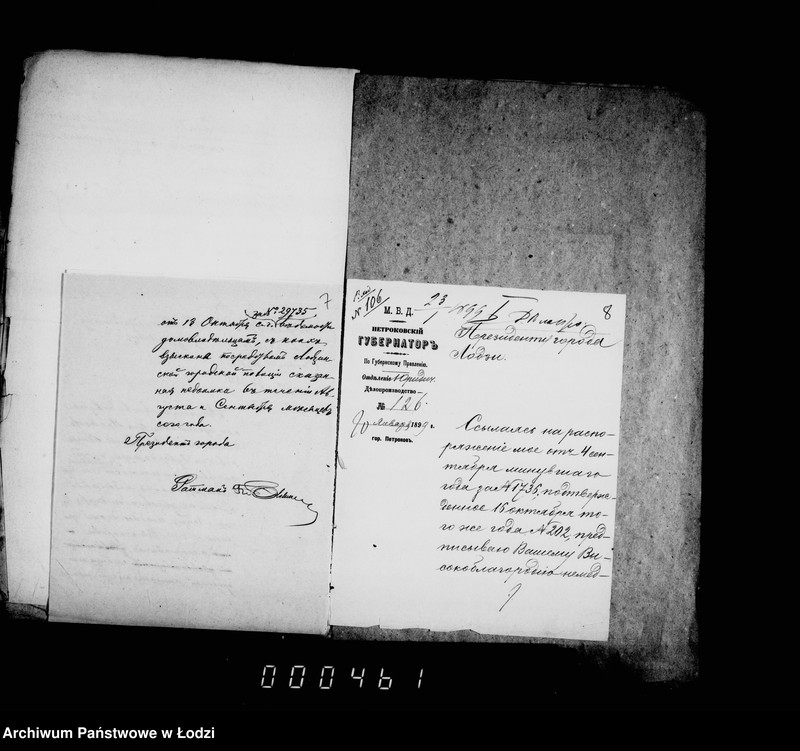 7
за № 29735
отъ 13 Октября с.г. вѣдомость
домовладѣльцамъ, съ коихъ
взыскана посредствомъ Лодзин-
ской городской полиціи сказан-
ная недоимка въ теченіи Ав-
густа и Сентября мѣсяцевъ
сего года.
Президентъ города
Ратманъ
8
№ 106
23
1
М. В. Д.
ПЕТРОКОВСКІЙ
ГУБЕРНАТОРЪ
По Губернскому Правленію.
Отдѣленіе Юридич.
Дѣлопроизводство
№ 126.
Января 1899 г.
гор. Петроковъ.
Президенту города
Лодзи.
Ссылаясь на распо-
ряженіе мое отъ 4 сен-
тября минувшаго
года за № 1735, подтверж-
денное 15 октября то-
го же года № 202, пред-
писываю Вашему Вы-
сокоблагородію немед-
000461
Archiwum Państwowe w Łodzi